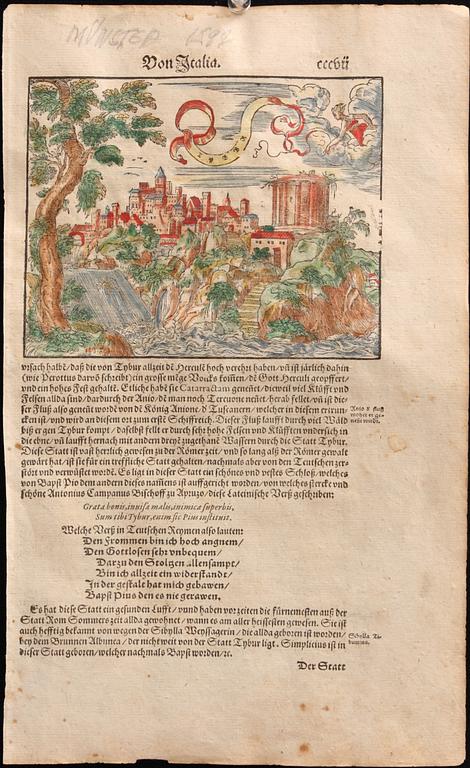 MÜNSTER 1598
Von Italia. cccvii
vrsach halbẽ/ daß die von Tybur allzeit dẽ Herculẽ hoch verehrt haben/ vñ ist järlich dahin
(wie Perottus darvõ schreibt) ein grosse mẽge Volcks kom̃en/ dẽ Gott Herculi geopffert/
vnd ein hohes Fest gehaltẽ. Etliche habẽ sie Catarractam genen̄et/ dieweil viel Klüfft vnd
Felsen allda sind/ dardurch der Anio/ dẽ man noch Teverone nen̄et/ herab fellet/ vñ ist die-
ser Fluß also genen̄t wordẽ von dẽ König Anione/ ð Tuscanern/ welcher in diesem ertrun-
cken ist/ vnd wird an diesem ort zum erstẽ Schiffreich. Dieser Fluß laufft durch viel Wäld
biß er gen Tybur kompt/ daselbst fellt er durch sehr hohe Felsen vnd Klüfften vndersich in
die ebne/ vñ laufft hernach mit andern dreyẽ zugethanẽ Wassern durch die Statt Tybur.
Diese Statt ist vast herrlich gewesen zu der Römer zeit/ vnd so lang alß der Römer gewalt
gewärt hat/ ist sie für ein treffliche Statt gehalten/ nachmals aber von den Teutschen zer-
stört vnd verwüstet wordẽ. Es ligt in dieser Statt ein schönes vnd vestes Schloß/ welches
von Bapst Pio dem andern dieses nam̃ens ist auffgericht worden/ von welches stercke vnd
schöne Antonius Campanus Bischoff zu Apruzo/ diese Lateinische Verß geschriben:
Anio ð fluß
woher er ge-
nen̄t wirdt.
Grata bonis, inuisa malis, inimica superbis,
Sum tibi Tybur, enim sic Pius instituit.
Welche Verß in Teutschen Reymen also lauten:
Den Frommen bin ich hoch angnem/
Den Gottlosen sehr vnbequem/
Darzu den Stolzen allensampt/
Bin ich allzeit ein widerstandt/
In der gestalt hat mich gebawen/
Bapst Pius den es nie gerawen.
Es hat diese Statt ein gesunden Lufft/ vnnd haben vor zeiten die fürnemesten auß der
Statt Rom Sommers zeit allda gewohnet/ wann es am aller heissesten gewesen. Sie ist
auch hefftig bekannt von wegen der Sibylla Weyssagerin/ die allda geboren ist worden/
bey dem Brunnen Albunea/ der nicht weit von der Statt Tybur ligt. Simplicius ist in
dieser Statt geboren/ welcher nachmals Bapst worden/ ꝛc.
Sibylla Ti-
burtina.
Der Statt